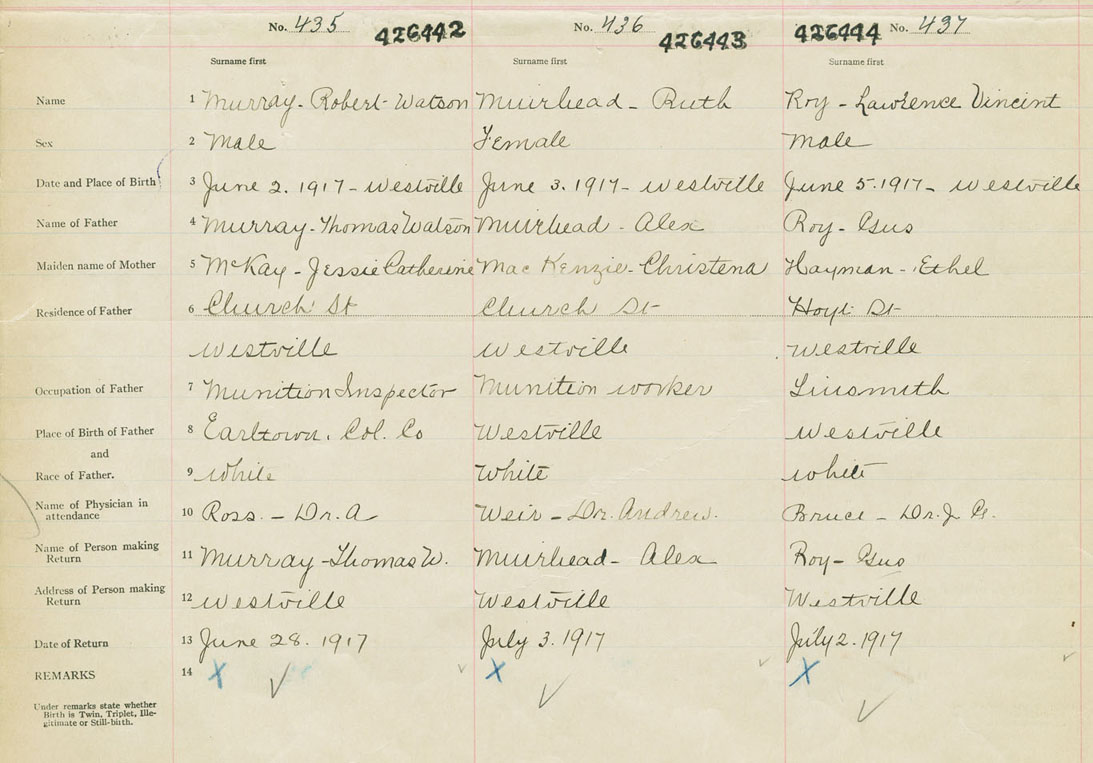 No. 435 426442 No. 436 426443 426444 No. 437
Surname first Surname first Surname first
Name 1 Murray - Robert Watson Muirhead - Ruth Roy - Lawrence Vincint
Sex 2 Male Female Male
Date and Place of Birth 3 June 2. 1917 - Westville June 3. 1917 - Westville June 5. 1917 - Westville
Name of Father 4 Murray - Thomas Watson Muirhead - Alex Roy - Gus
Maiden name of Mother 5 McKay - Jessie Catherine MacKenzie - Christena Hayman - Ethel
Residence of Father 6 Church St Church St Hoyt St
Westville Westville Westville
Occupation of Father 7 Munition Inspector Munition worker Tinsmith
Place of Birth of Father 8 Earltown. Col. Co Westville Westville
and
Race of Father. 9 White White White
Name of Physician in
attendance 10 Ross. - Dr. A Weir - Dr. Andrew. Bruce - Dr. J. G.
Name of Person making
Return 11 Murray - Thomas W. Muirhead - Alex Roy - Gus
Address of Person making
Return 12 Westville Westville Westville
Date of Return 13 June 28. 1917 July 3. 1917 July 2. 1917
REMARKS 14 X X X
Under remarks state whether
Birth is Twin, Triplet, Ille-
gitimate or Still-birth.